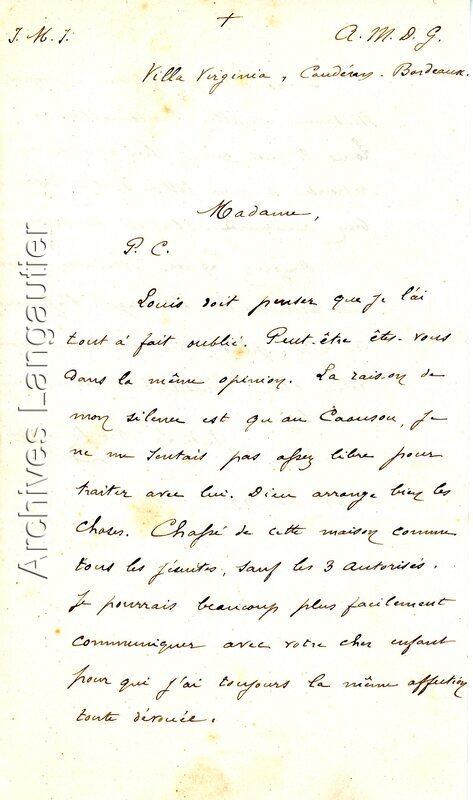 +
J. M. J.
A. M. D. G.
Villa Virginia, Caudéran. Bordeaux.
Madame,
P. C.
Louis doit penser que je l'ai
tout à fait oublié. Peut-être êtes-vous
dans la même opinion. La raison de
mon silence est qu'au Caousou, je
ne me sentais pas assez libre pour
traiter avec lui. Dieu arrange bien les
choses. Chassé de cette maison comme
tous les jésuites, sauf les 3 autorisés.
Je pourrais beaucoup plus facilement
communiquer avec votre cher enfant
pour qui j'ai toujours la même affection
toute dévouée.
Archives Langautier